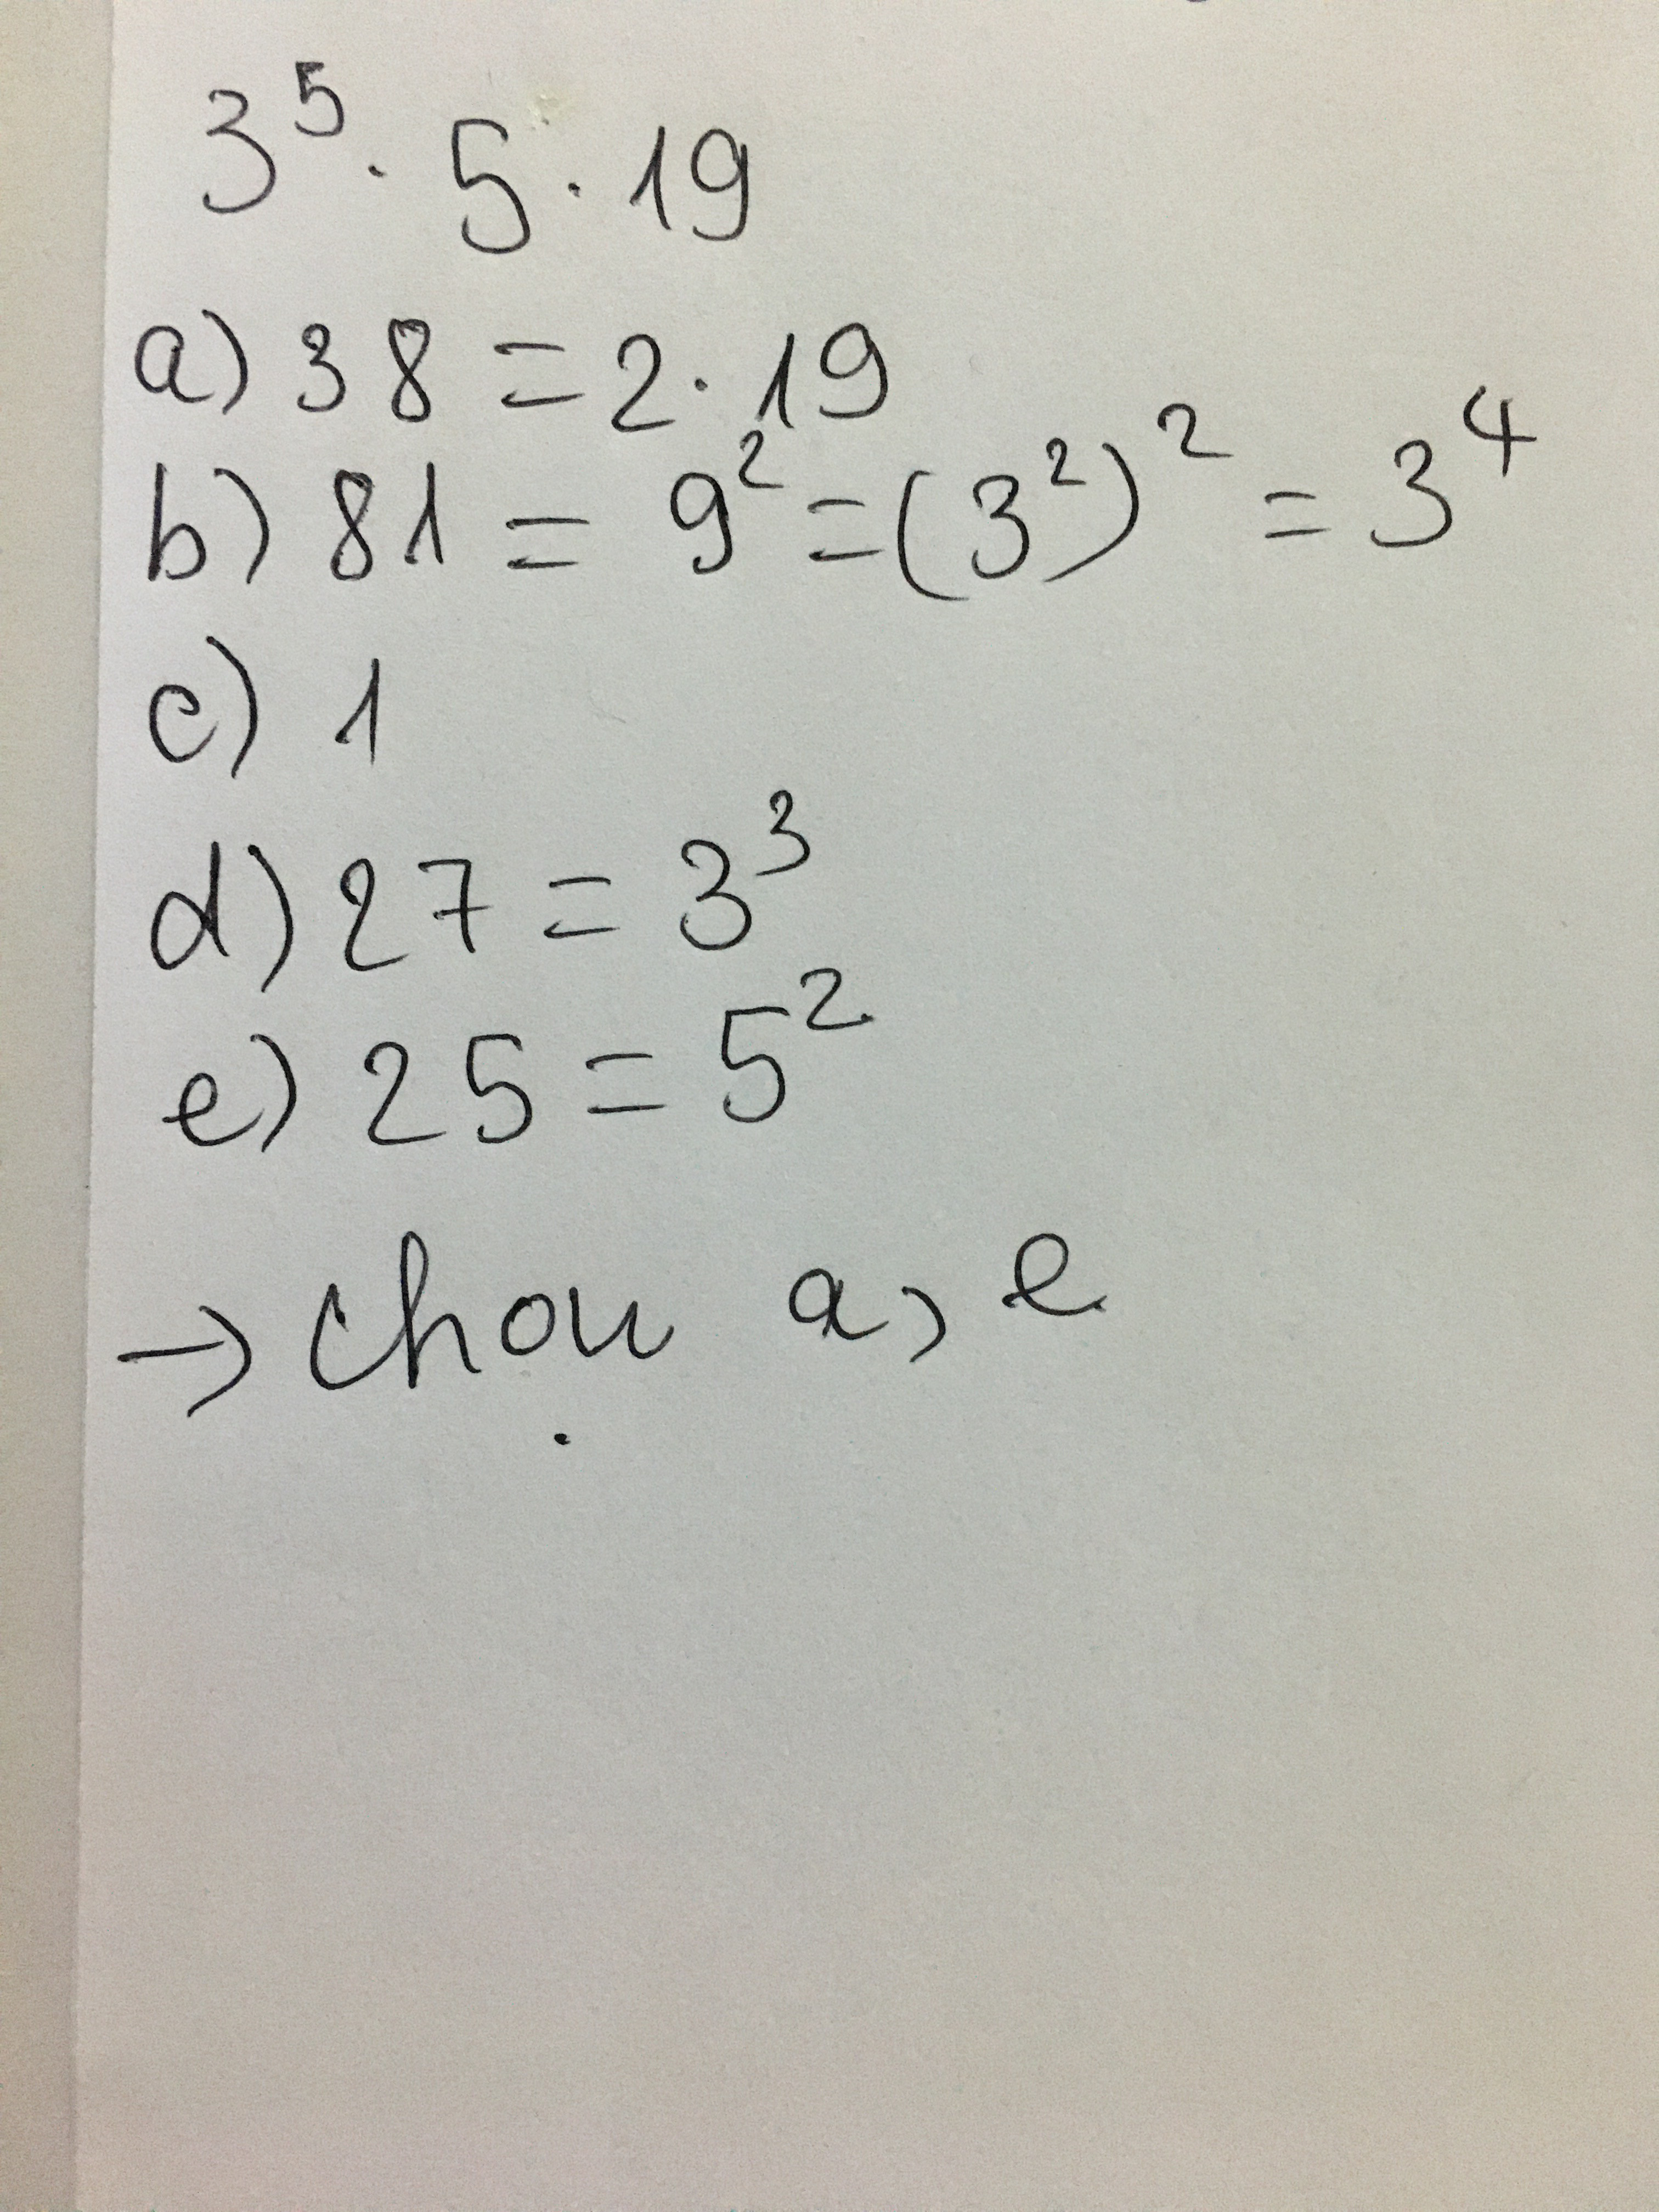 3⁵ · 5 · 19
a) 38 = 2 · 19
b) 81 = 9² = (3²)² = 3⁴
c) 1
d) 27 = 3³
e) 25 = 5²
→ chọn a, e